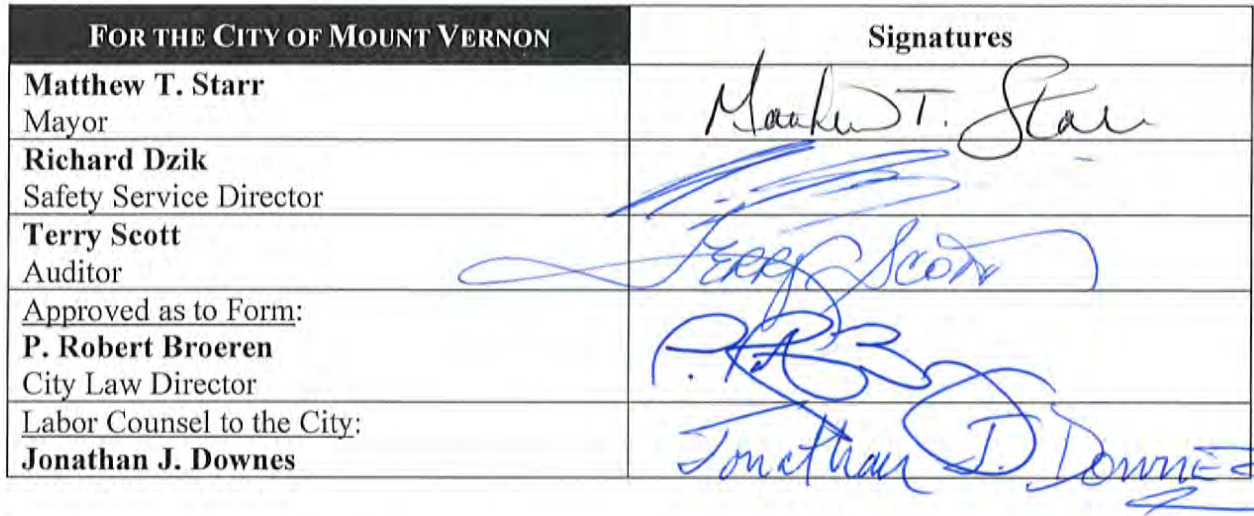 FOR THE CITY OF MOUNT VERNON
Signatures
Matthew T. Starr
Mayor
Matthew T. Starr
Richard Dzik
Safety Service Director
Terry Scott
Auditor
Terry Scott
Approved as to Form:
P. Robert Broeren
City Law Director
P.
Labor Counsel to the City:
Jonathan J. Downes
Jonathan J. Downes